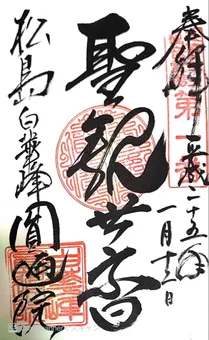 奉拝 平成二十五年
一月十三日
聖観世音
松島白鷺峰圓通院